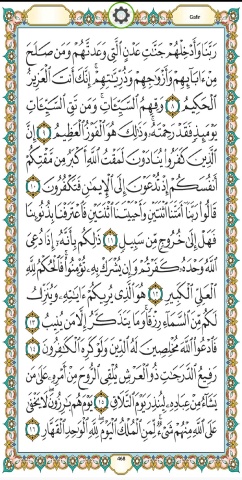 Gafir
رَبَّنَا وَأَدْخِلْهُمْ جَنَّٰتِ عَدْنٍ ٱلَّتِى وَعَدتَّهُمْ وَمَن صَلَحَ
مِنْ ءَابَآئِهِمْ وَأَزْوَٰجِهِمْ وَذُرِّيَّٰتِهِمْ ۚ إِنَّكَ أَنتَ ٱلْعَزِيزُ
ٱلْحَكِيمُ ٨ وَقِهِمُ ٱلسَّيِّـَٔاتِ ۚ وَمَن تَقِ ٱلسَّيِّـَٔاتِ
يَوْمَئِذٍ فَقَدْ رَحِمْتَهُۥ ۚ وَذَٰلِكَ هُوَ ٱلْفَوْزُ ٱلْعَظِيمُ ٩ إِنَّ
ٱلَّذِينَ كَفَرُوا۟ يُنَادَوْنَ لَمَقْتُ ٱللَّهِ أَكْبَرُ مِن مَّقْتِكُمْ
أَنفُسَكُمْ إِذْ تُدْعَوْنَ إِلَى ٱلْإِيمَٰنِ فَتَكْفُرُونَ ١٠
قَالُوا۟ رَبَّنَآ أَمَتَّنَا ٱثْنَتَيْنِ وَأَحْيَيْتَنَا ٱثْنَتَيْنِ فَٱعْتَرَفْنَا بِذُنُوبِنَا
فَهَلْ إِلَىٰ خُرُوجٍ مِّن سَبِيلٍ ١١ ذَٰلِكُم بِأَنَّهُۥٓ إِذَا دُعِىَ
ٱللَّهُ وَحْدَهُۥ كَفَرْتُمْ ۖ وَإِن يُشْرَكْ بِهِۦ تُؤْمِنُوا۟ ۚ فَٱلْحُكْمُ لِلَّهِ
ٱلْعَلِىِّ ٱلْكَبِيرِ ١٢ هُوَ ٱلَّذِى يُرِيكُمْ ءَايَٰتِهِۦ وَيُنَزِّلُ
لَكُم مِّنَ ٱلسَّمَآءِ رِزْقًا ۚ وَمَا يَتَذَكَّرُ إِلَّا مَن يُنِيبُ ١٣
فَٱدْعُوا۟ ٱللَّهَ مُخْلِصِينَ لَهُ ٱلدِّينَ وَلَوْ كَرِهَ ٱلْكَٰفِرُونَ ١٤
رَفِيعُ ٱلدَّرَجَٰتِ ذُو ٱلْعَرْشِ يُلْقِى ٱلرُّوحَ مِنْ أَمْرِهِۦ عَلَىٰ مَن
يَشَآءُ مِنْ عِبَادِهِۦ لِيُنذِرَ يَوْمَ ٱلتَّلَاقِ ١٥ يَوْمَ هُم بَٰرِزُونَ ۖ لَا يَخْفَىٰ
عَلَى ٱللَّهِ مِنْهُمْ شَىْءٌ ۚ لِّمَنِ ٱلْمُلْكُ ٱلْيَوْمَ ۖ لِلَّهِ ٱلْوَٰحِدِ ٱلْقَهَّارِ ١٦
468